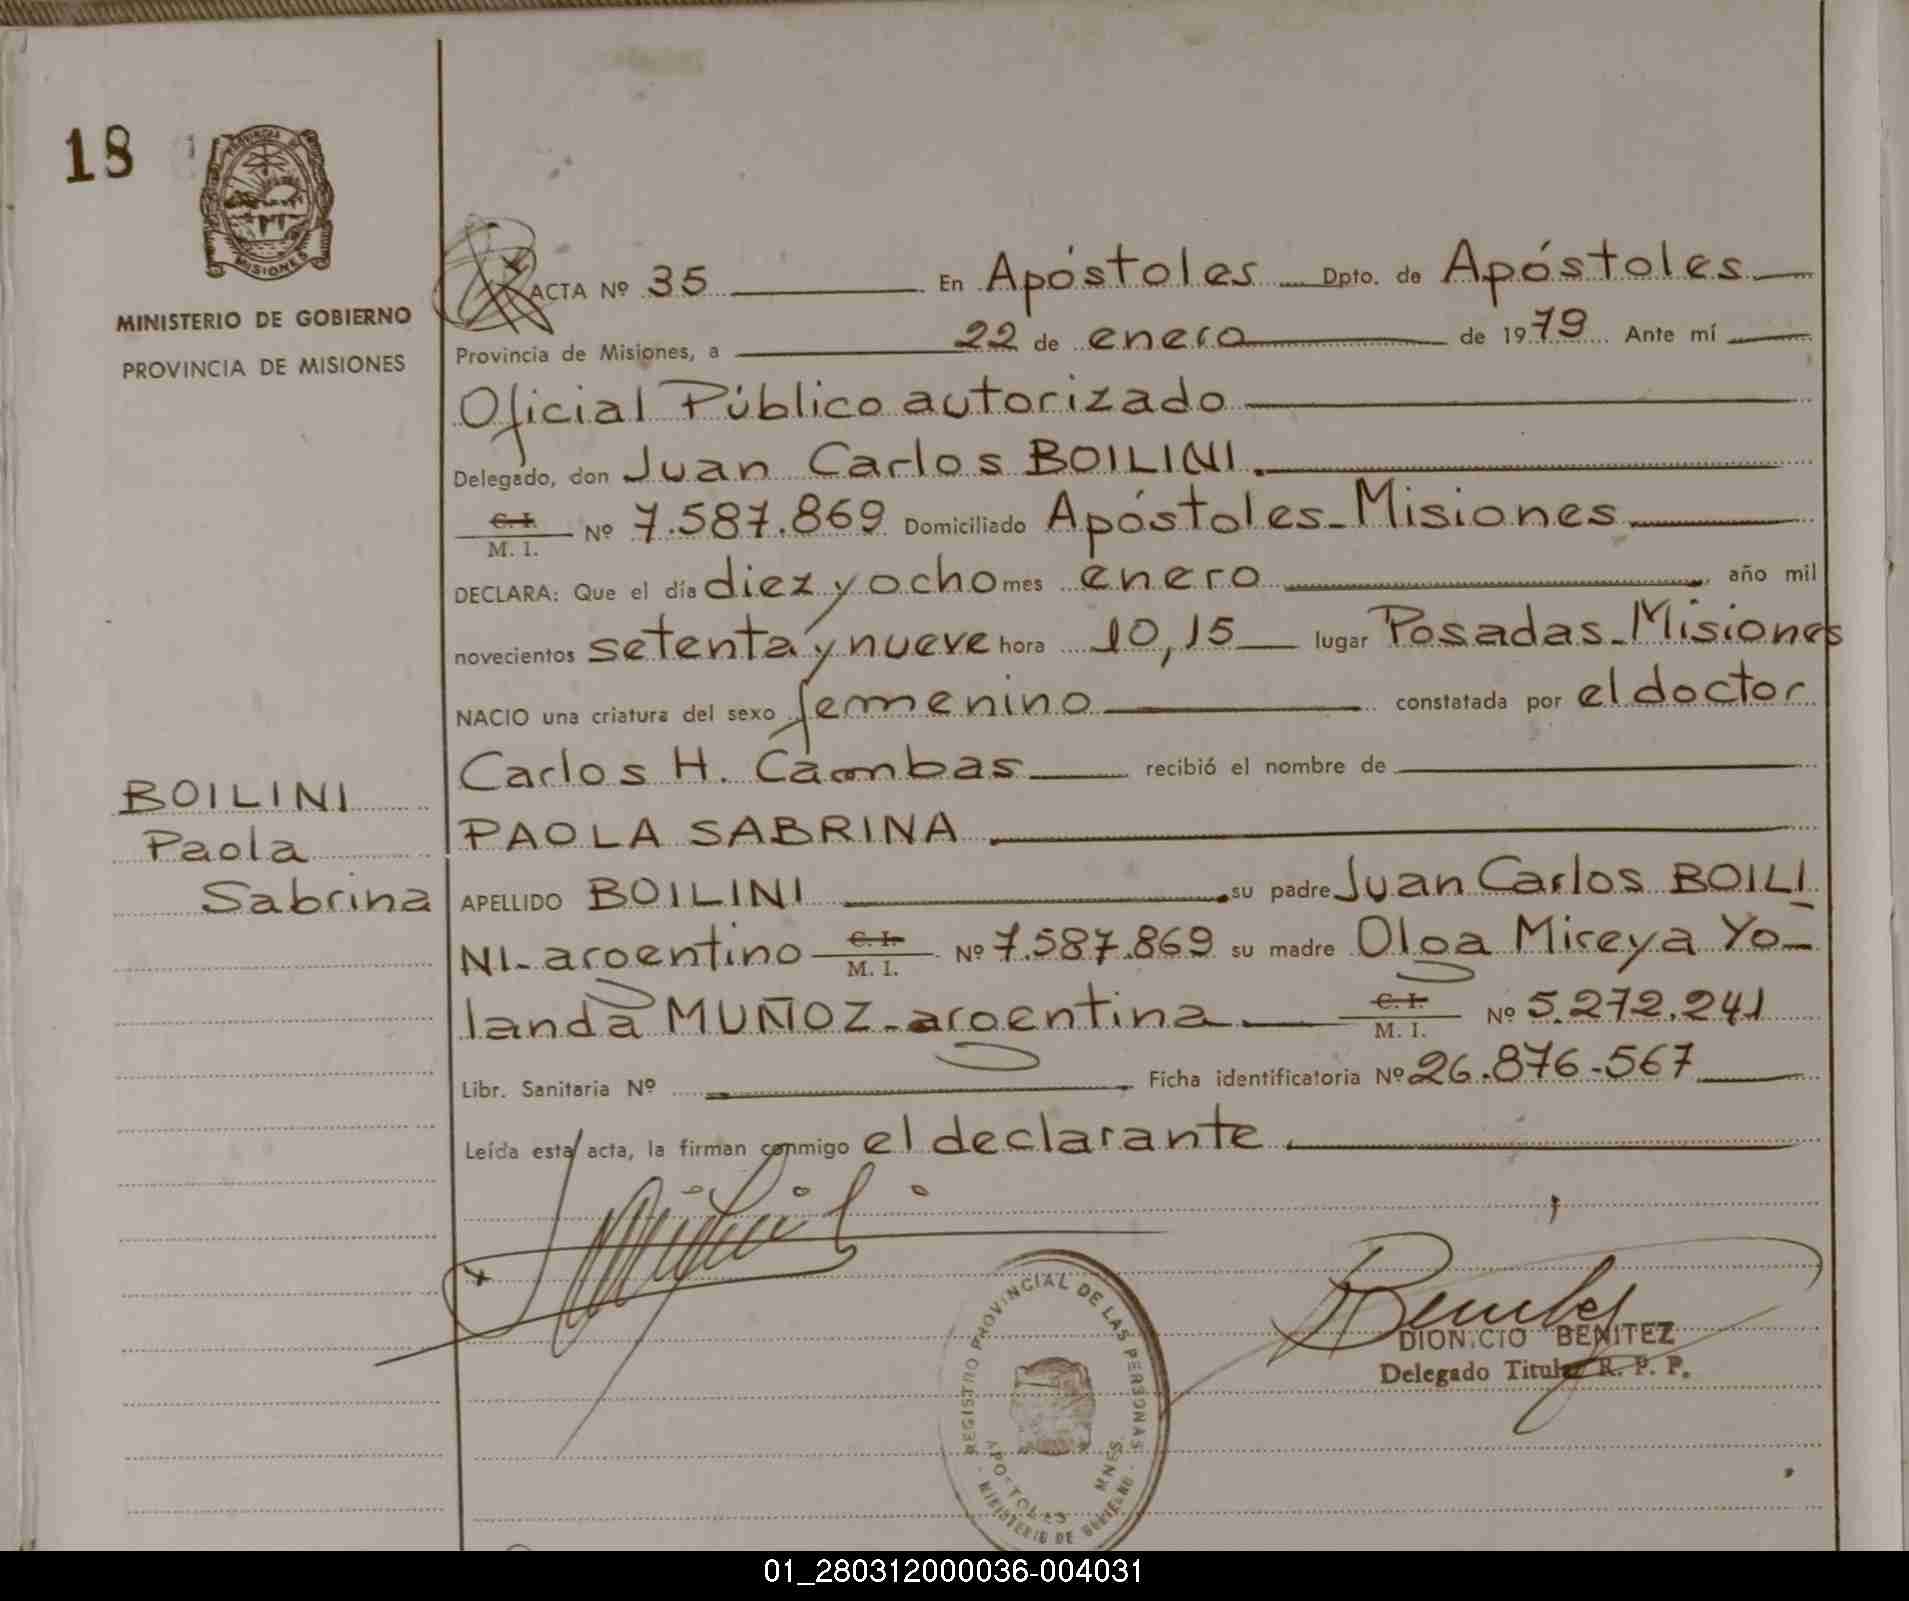 18
PROVINCIA DE
MISIONES
MINISTERIO DE GOBIERNO
PROVINCIA DE MISIONES
ACTA Nº 35 En Apóstoles Dpto. de Apóstoles
Provincia de Misiones, a 22 de enero de 1979 Ante mí
Oficial Público autorizado
Delegado, don Juan Carlos BOILINI.
C. I.
M. I. Nº 7.587.869 Domiciliado Apóstoles-Misiones
DECLARA: Que el día diez y ocho mes enero, año mil
novecientos setenta y nueve hora 10,15 lugar Posadas-Misiones
NACIO una criatura del sexo femenino constatada por el doctor
Carlos H. Cambas recibió el nombre de
PAOLA SABRINA
BOILINI
Paola
Sabrina
APELLIDO BOILINI su padre Juan Carlos BOILI
NI-argentino C. I. M. I. Nº 7.587.869 su madre Olga Mireya Yo-
landa MUÑOZ-argentina C. I. M. I. Nº 5.272.241
Libr. Sanitaria Nº Ficha identificatoria Nº 26.876-567
Leída esta acta, la firman conmigo el declarante
DIONICIO BENITEZ
Delegado Titular R. P. P.
REGISTRO PROVINCIAL DE LAS PERSONAS
APOSTOLES MNES
MINISTERIO DE GOBIERNO
01_280312000036-004031